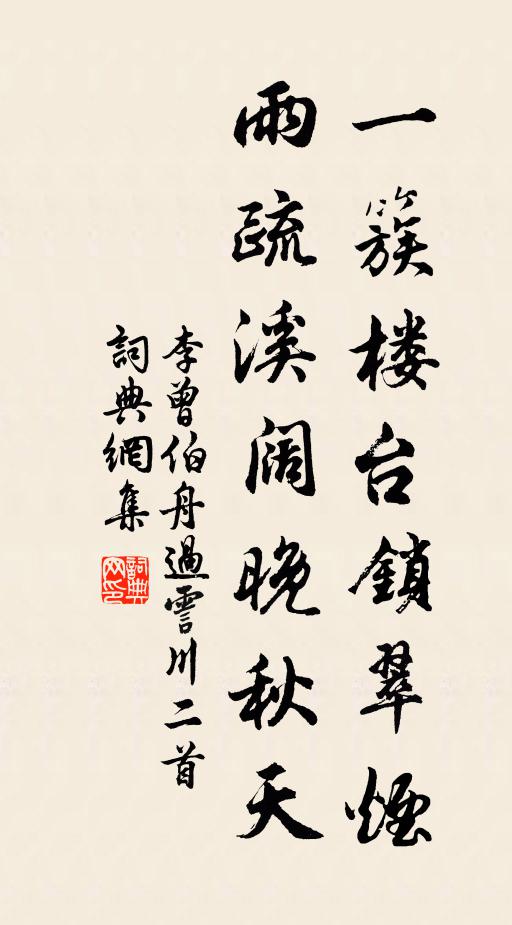 一簇楼台鎖翠煙
雨疏溪阔晚秋天
李曾伯舟過霅川二首
詞典網集
詞典网印